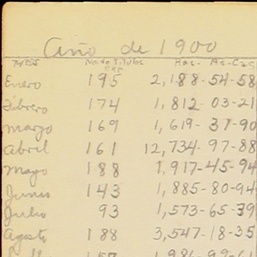 Año de 1900
Mes No de Titulos Has. As. Cas
Enero 195 2,188-54-58
Febrero 174 1,812-03-21
marzo 169 1,619-37-90
abril 161 12,734-97-88
Mayo 188 1,917-45-94
Junio 143 1,885-80-94
Julio 93 1,573-65-39
Agosto 188 3,547-18-35
157